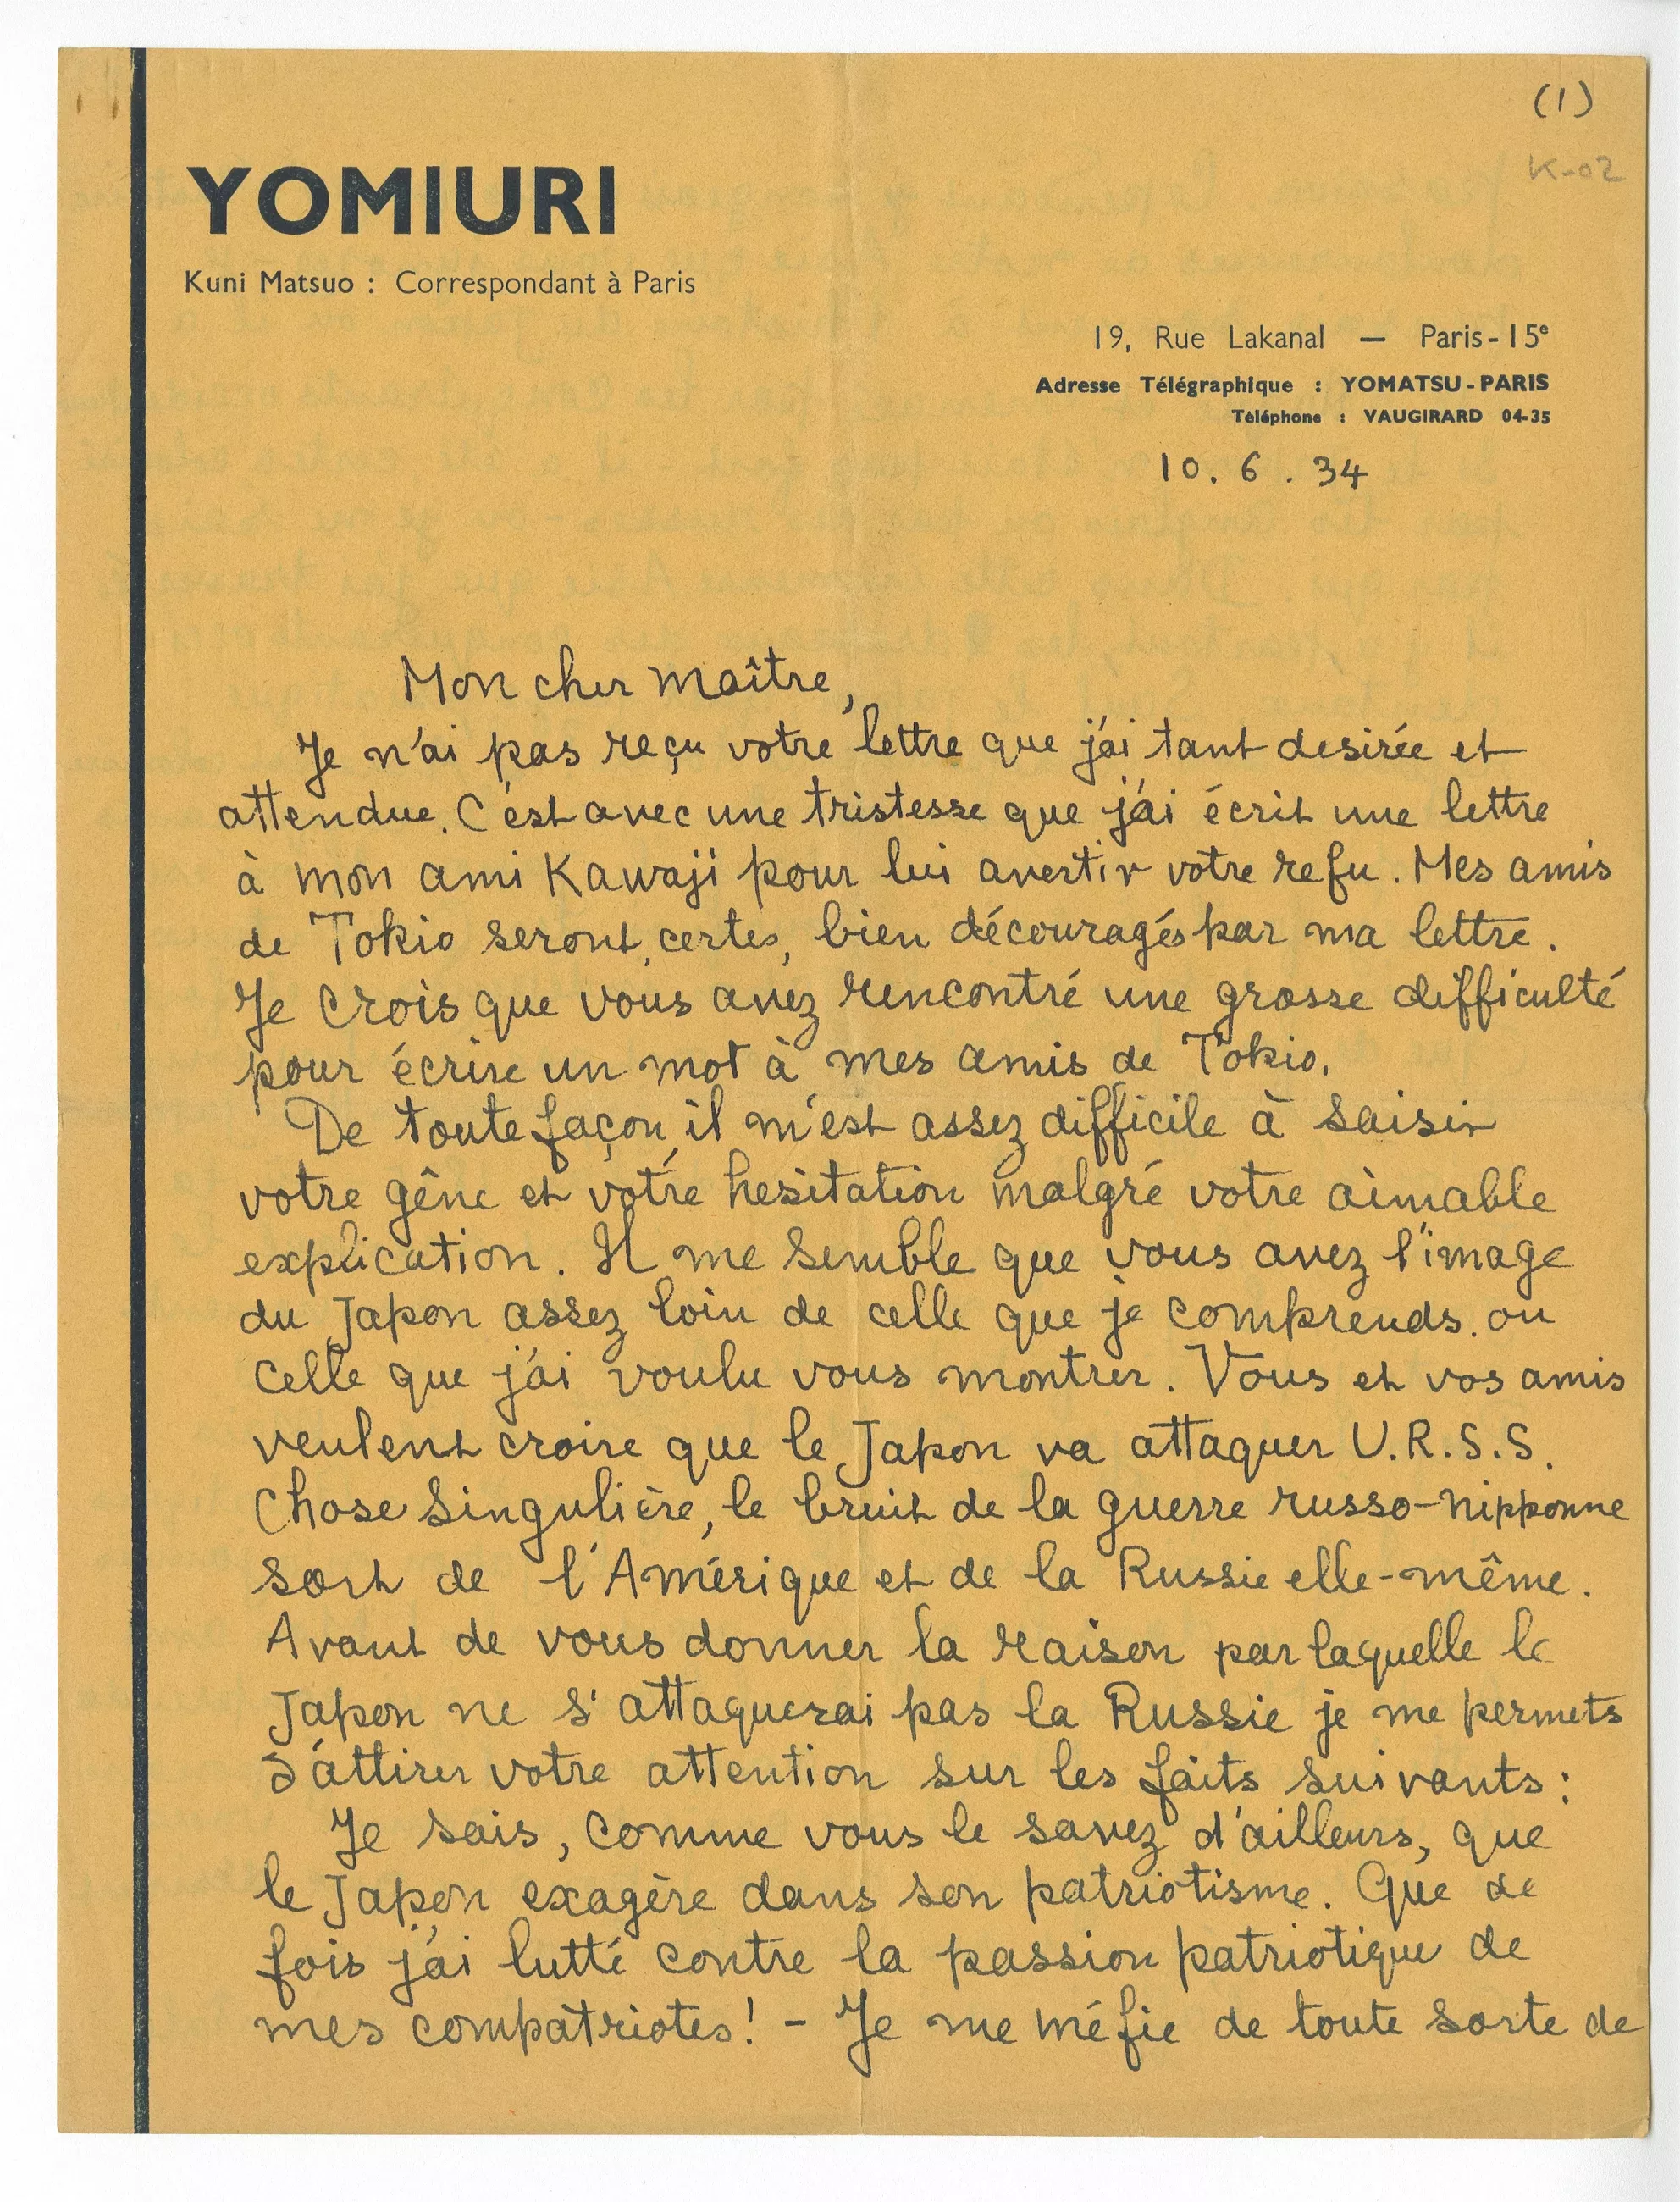 (1)
K-02
YOMIURI
Kuni Matsuo : Correspondant à Paris
19, Rue Lakanal — Paris-15e
Adresse Télégraphique : YOMATSU-PARIS
Téléphone : VAUGIRARD 04-35
10. 6. 34
Mon cher maître,
Je n'ai pas reçu votre lettre que j'ai tant desirée et
attendue. C'est avec une tristesse que j'ai écrit une lettre
à mon ami Kawaji pour lui avertir votre refu. Mes amis
de Tokio seront, certes, bien découragés par ma lettre.
Je crois que vous avez rencontré une grosse difficulté
pour écrire un mot à mes amis de Tokio.
De toute façon, il m'est assez difficile à saisir
votre gêne et votre hesitation malgré votre aimable
explication. Il me semble que vous avez l'image
du Japon assez loin de celle que je comprends. ou
celle que j'ai voulu vous montrer. Vous et vos amis
veulent croire que le Japon va attaquer U.R.S.S.
Chose singulière, le bruit de la guerre russo-nipponne
sort de l'Amérique et de la Russie elle-même.
Avant de vous donner la raison par laquelle le
Japon ne s'attaquerai pas la Russie je me permets
d'attirer votre attention sur les faits suivants:
Je sais, comme vous le savez d'ailleurs, que
le Japon exagère dans son patriotisme. Que de
fois j'ai lutté contre la passion patriotique de
mes compatriotes! - Je me méfie de toute sorte de